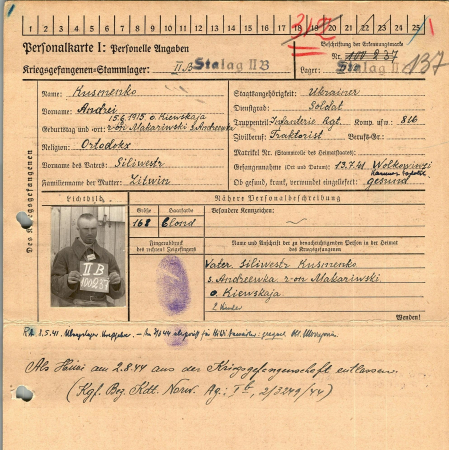 1 2 3 4 5 6 7 8 9 10 11 12 13 14 15 16 17 18 19 20 21 22 23 24 25
Personalkarte I: Personelle Angaben
Beschriftung der Erkennungsmarke
Nr. 100237
Kriegsgefangenen-Stammlager: II B Stalag II B
Lager: Stalag II B 137
Des Kriegsgefangenen
Name: Kusmenko
Vorname: Andrei
Geburtstag und -ort: 15.6.1915 o. Kiewskaja
r-on Makariwski s. Andreewka
Religion: Ortodox
Vorname des Vaters: Siliwestr
Familienname der Mutter: Litwin
Staatsangehörigkeit: Ukrainer
Dienstgrad: Soldat
Truppenteil: Infanterie Rgt. Komp. usw.: 816
Zivilberuf: Traktorist Berufs-Gr.:
Matrikel Nr. (Stammrolle des Heimatstaates):
Gefangennahme (Ort und Datum): 13.7.41
Ob gesund, krank, verwundet eingeliefert: gesund
Lichtbild
II B
100237
Nähere Personalbeschreibung
Größe
Haarfarbe
Besondere Kennzeichen:
168
blond
Fingerabdruck
des rechten Zeigefingers
Name und Anschrift der zu benachrichtigenden Person in der Heimat
des Kriegsgefangenen
Vater. Siliwestr Kusmenko
s. Andreewka r-on Makariwski
o. Kiewskaja
Wenden!
Als am 2.8.44 aus der Kriegsgefangenschaft entlassen.
(Kgf. Bez. Kdt. Norw. Ag.: 2/3249/44)